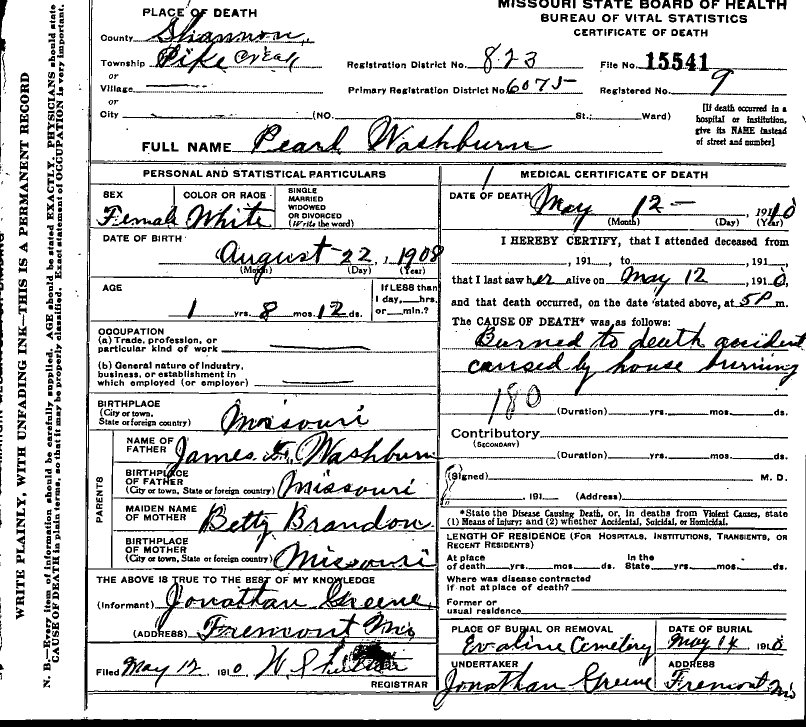 MISSOURI STATE BOARD OF HEALTH
BUREAU OF VITAL STATISTICS
CERTIFICATE OF DEATH
PLACE OF DEATH
County Shannon,
Township Pike Creek
or
Village
or
City (NO. St.; Ward)
Registration District No. 823
File No. 15541
Primary Registration District No. 6075
Registered No. 9
[If death occurred in a
hospital or institution,
give its NAME instead
of street and number]
FULL NAME Pearl Washburn
PERSONAL AND STATISTICAL PARTICULARS
SEX Female
COLOR OR RACE White
SINGLE
MARRIED
WIDOWED
OR DIVORCED
(Write the word)
DATE OF BIRTH
August 22, 1908
(Month) (Day) (Year)
AGE
1 yrs. 8 mos. 12 ds.
If LESS than
1 day, hrs.
or min.?
OCCUPATION
(a) Trade, profession, or
particular kind of work
(b) General nature of industry,
business, or establishment in
which employed (or employer)
BIRTHPLACE
(City or town,
State or foreign country) Missouri
PARENTS
NAME OF
FATHER James Washburn
BIRTHPLACE
OF FATHER
(City or town, State or foreign country) Missouri
MAIDEN NAME
OF MOTHER Betty Brandon
BIRTHPLACE
OF MOTHER
(City or town, State or foreign country) Missouri
THE ABOVE IS TRUE TO THE BEST OF MY KNOWLEDGE
(Informant) Jonathan Greene,
(ADDRESS) Fremont Mo
Filed May 12 1910
REGISTRAR
MEDICAL CERTIFICATE OF DEATH
DATE OF DEATH May 12 — 1910
(Month) (Day) (Year)
I HEREBY CERTIFY, that I attended deceased from
, 191 , to , 191 ,
that I last saw her alive on May 12 , 1910,
and that death occurred, on the date stated above, at 5 P m.
The CAUSE OF DEATH* was as follows:
Burned to death accident
caused by house burning
180
(Duration) yrs. mos. ds.
Contributory
(SECONDARY)
(Duration) yrs. mos. ds.
(Signed) M. D.
191 (Address)
*State the Disease Causing Death, or, in deaths from Violent Causes, state
(1) Means of Injury; and (2) whether Accidental, Suicidal, or Homicidal.
LENGTH OF RESIDENCE (FOR HOSPITALS, INSTITUTIONS, TRANSIENTS, OR
RECENT RESIDENTS)
At place
of death yrs. mos. ds.
In the
State yrs. mos. ds.
Where was disease contracted
if not at place of death?
Former or
usual residence
PLACE OF BURIAL OR REMOVAL
Evaline Cemetery
DATE OF BURIAL
May 14 1910
UNDERTAKER
Jonathan Greene
ADDRESS
Fremont Mo
WRITE PLAINLY, WITH UNFADING INK—THIS IS A PERMANENT RECORD
N. B.—Every item of information should be carefully supplied. AGE should be stated EXACTLY. PHYSICIANS should state
CAUSE OF DEATH in plain terms, so that it may be properly classified. Exact statement of OCCUPATION is very important.